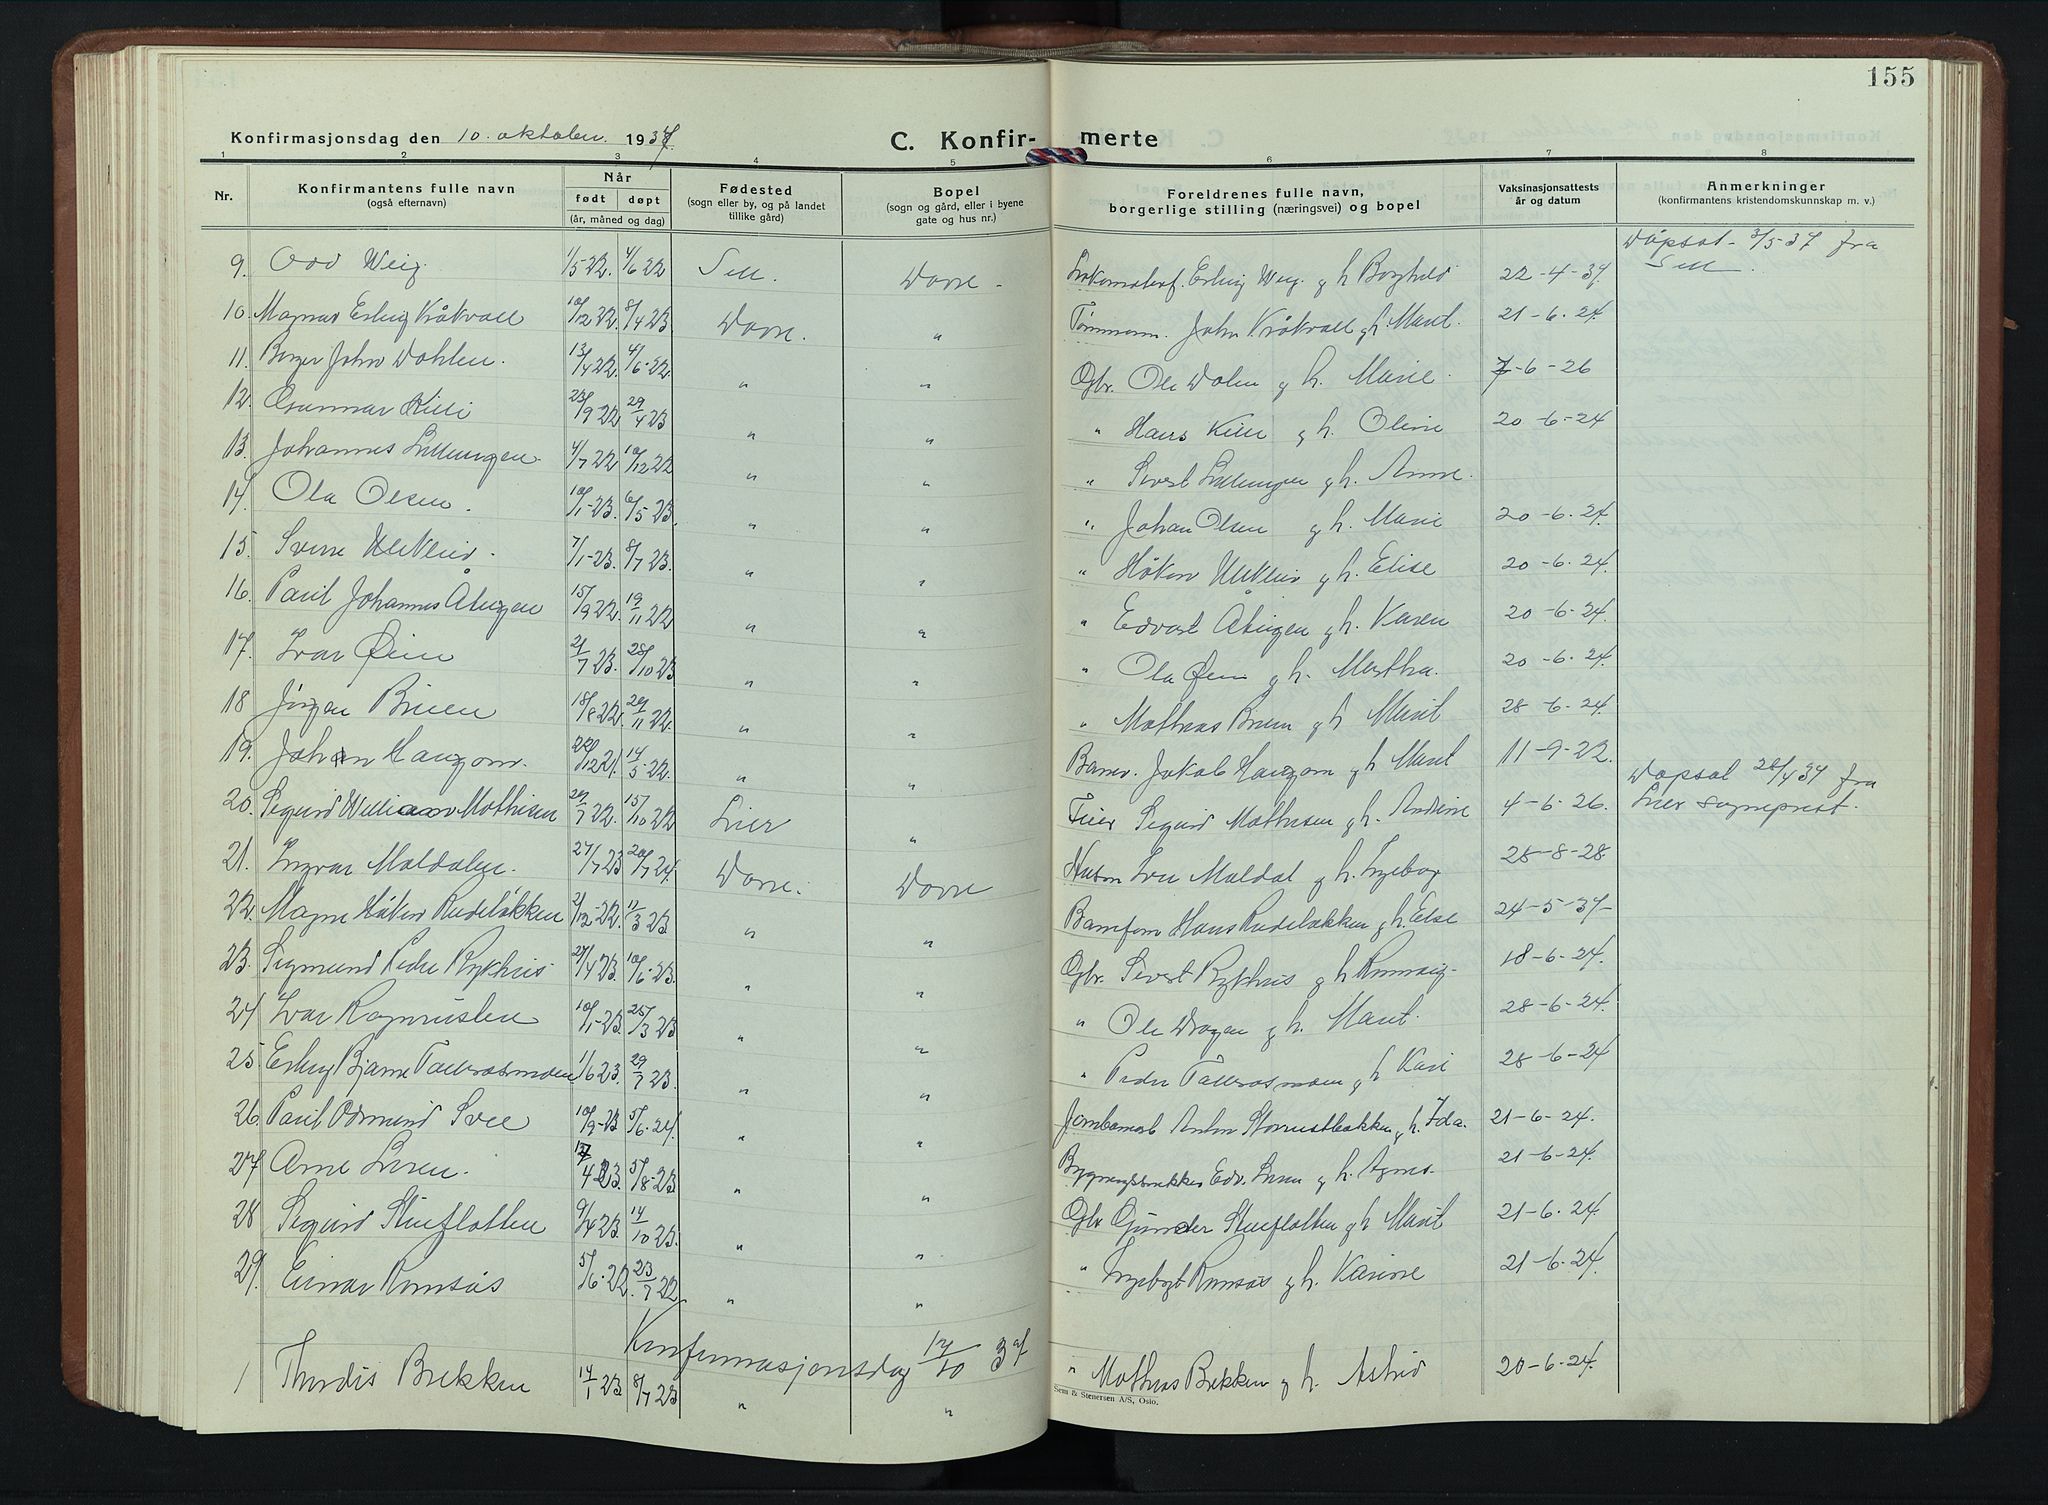 155
Konfirmasjonsdag den 10. oktober. 1937
C. Konfirmerte
1 2 3 4 5 6 7 8
Nr.
Konfirmantens fulle navn
(også efternavn)
Når
født døpt
(år, måned og dag)
Fødested
(sogn eller by, og på landet
tillike gård)
Bopel
(sogn og gård, eller i byene
gate og hus nr.)
Foreldrenes fulle navn,
borgerlige stilling (næringsvei) og bopel
Vaksinasjonsattests
år og datum
Anmerkninger
(konfirmantens kristendomskunnskap m. v.)
9. Odd Weig. 1/5 22. 4/6 22 Sell. Dovre - Erling Weig. g h Borghild 22-4-37. Døpsat. 3/5 37 fra Sell.
10. Magnar Erling Kråkvoll 10/12 22. 8/4 23 Dovre. " Tømmerm. John Kråkvoll g h. Marit. 21-6.24.
11. Birger John Dahlen. 13/4 22. 4/6.22. " " Gbr. Ole Dalen g h. Marie. 7-6-26
12. Gunnar Killi 23/9-22. 29/4 23 " " " Hans Killi g h. Oline 20-6-24
13. Johannes Lillungen. 4/7 22 10/12 22 " " " Sivert Lillungen g h. Anne.
14. Ola Olsen. 10/1-23. 6/5 23. " " " Johan Olsen g h. Marie 20-6.24.
15. Sverre Ulekleiv. 7/1-23. 8/7 23. " " " Håkon Ulekleiv g h. Elise 20-6.24.
16. Paul Johannes Åtingen 15/9 22. 19/11 22 " " " Edvart Åtingen g h. Karen 20-6.24.
17. Ivar Øien 21/7 23. 28/10 23 " " " Ola Øien g h. Martha. 20-6.24.
18 Jørgen Bruen 18/8 22. 29/11 22. " " " Mathias Bruen g h Marit 28-6.24.
19. Johan Haugom. 22/12 21. 14/5.22. " " Banev. Jakob Haugom g h Marit 11-9-22.
20. Sigurd William Mathisen 29/7 22. 15/10 22 Lier " Feier Sigurd Mathisen g h. Andrine 4-6.26. Døpsat 28/4 37 fra Lier sogneprest.
21. Ingvar Moldalen. 27/7 23 20/7 24. Dovre. Dovre Moldal g h. Ingeborg 28-8-28.
22. Magne Håkon Rudeløkken 2/12-22. 11/3 23 " " Baneform Hans Rudeløkken g h. Else 24-5-37-
23. Sigmund Peder Rykhus 27/4 23. 10/6-23. " " Gbr. Sivert Rykhus g h Ronnaug- 18-6-24.
24 Ivar Rognuslien 10/1-23. 25/3 23 " " " Ole Dragen g h. Marit. 28-6-24.
25. Erling Bjarne Tallerasmoen 1/6 23. 29/7 23. " " " Peder Tallerasmoen g h Kari 28-6-24
26. Paul Odmund Svee 10/9-23 5/6.24. " " Jernbanearb Anton Storrustbakken g h. Ida. 21-6-24.
27. Arne Loren. 4 23. 5/8-23 " " Edv. Loren g h. Agnes. 21-6-24.
28 Sigurd Stueflotten 9/4 23. 14/10 23. " " Gbr Gunder Stueflotten g h Marit 21-6.24.
29. Einar Romsås 5/6.22. 23/7 22 " " " Ingebrigt Romsås g h. Karine 21-6.24.
Konfirmasjonsdag 17/10 37
1 Thordis Brekken 14/1 23 8/7 23 " " " Mathias Brekken g h. Astrid 20-6-24.
Sem & Stenersen A/S, Oslo.